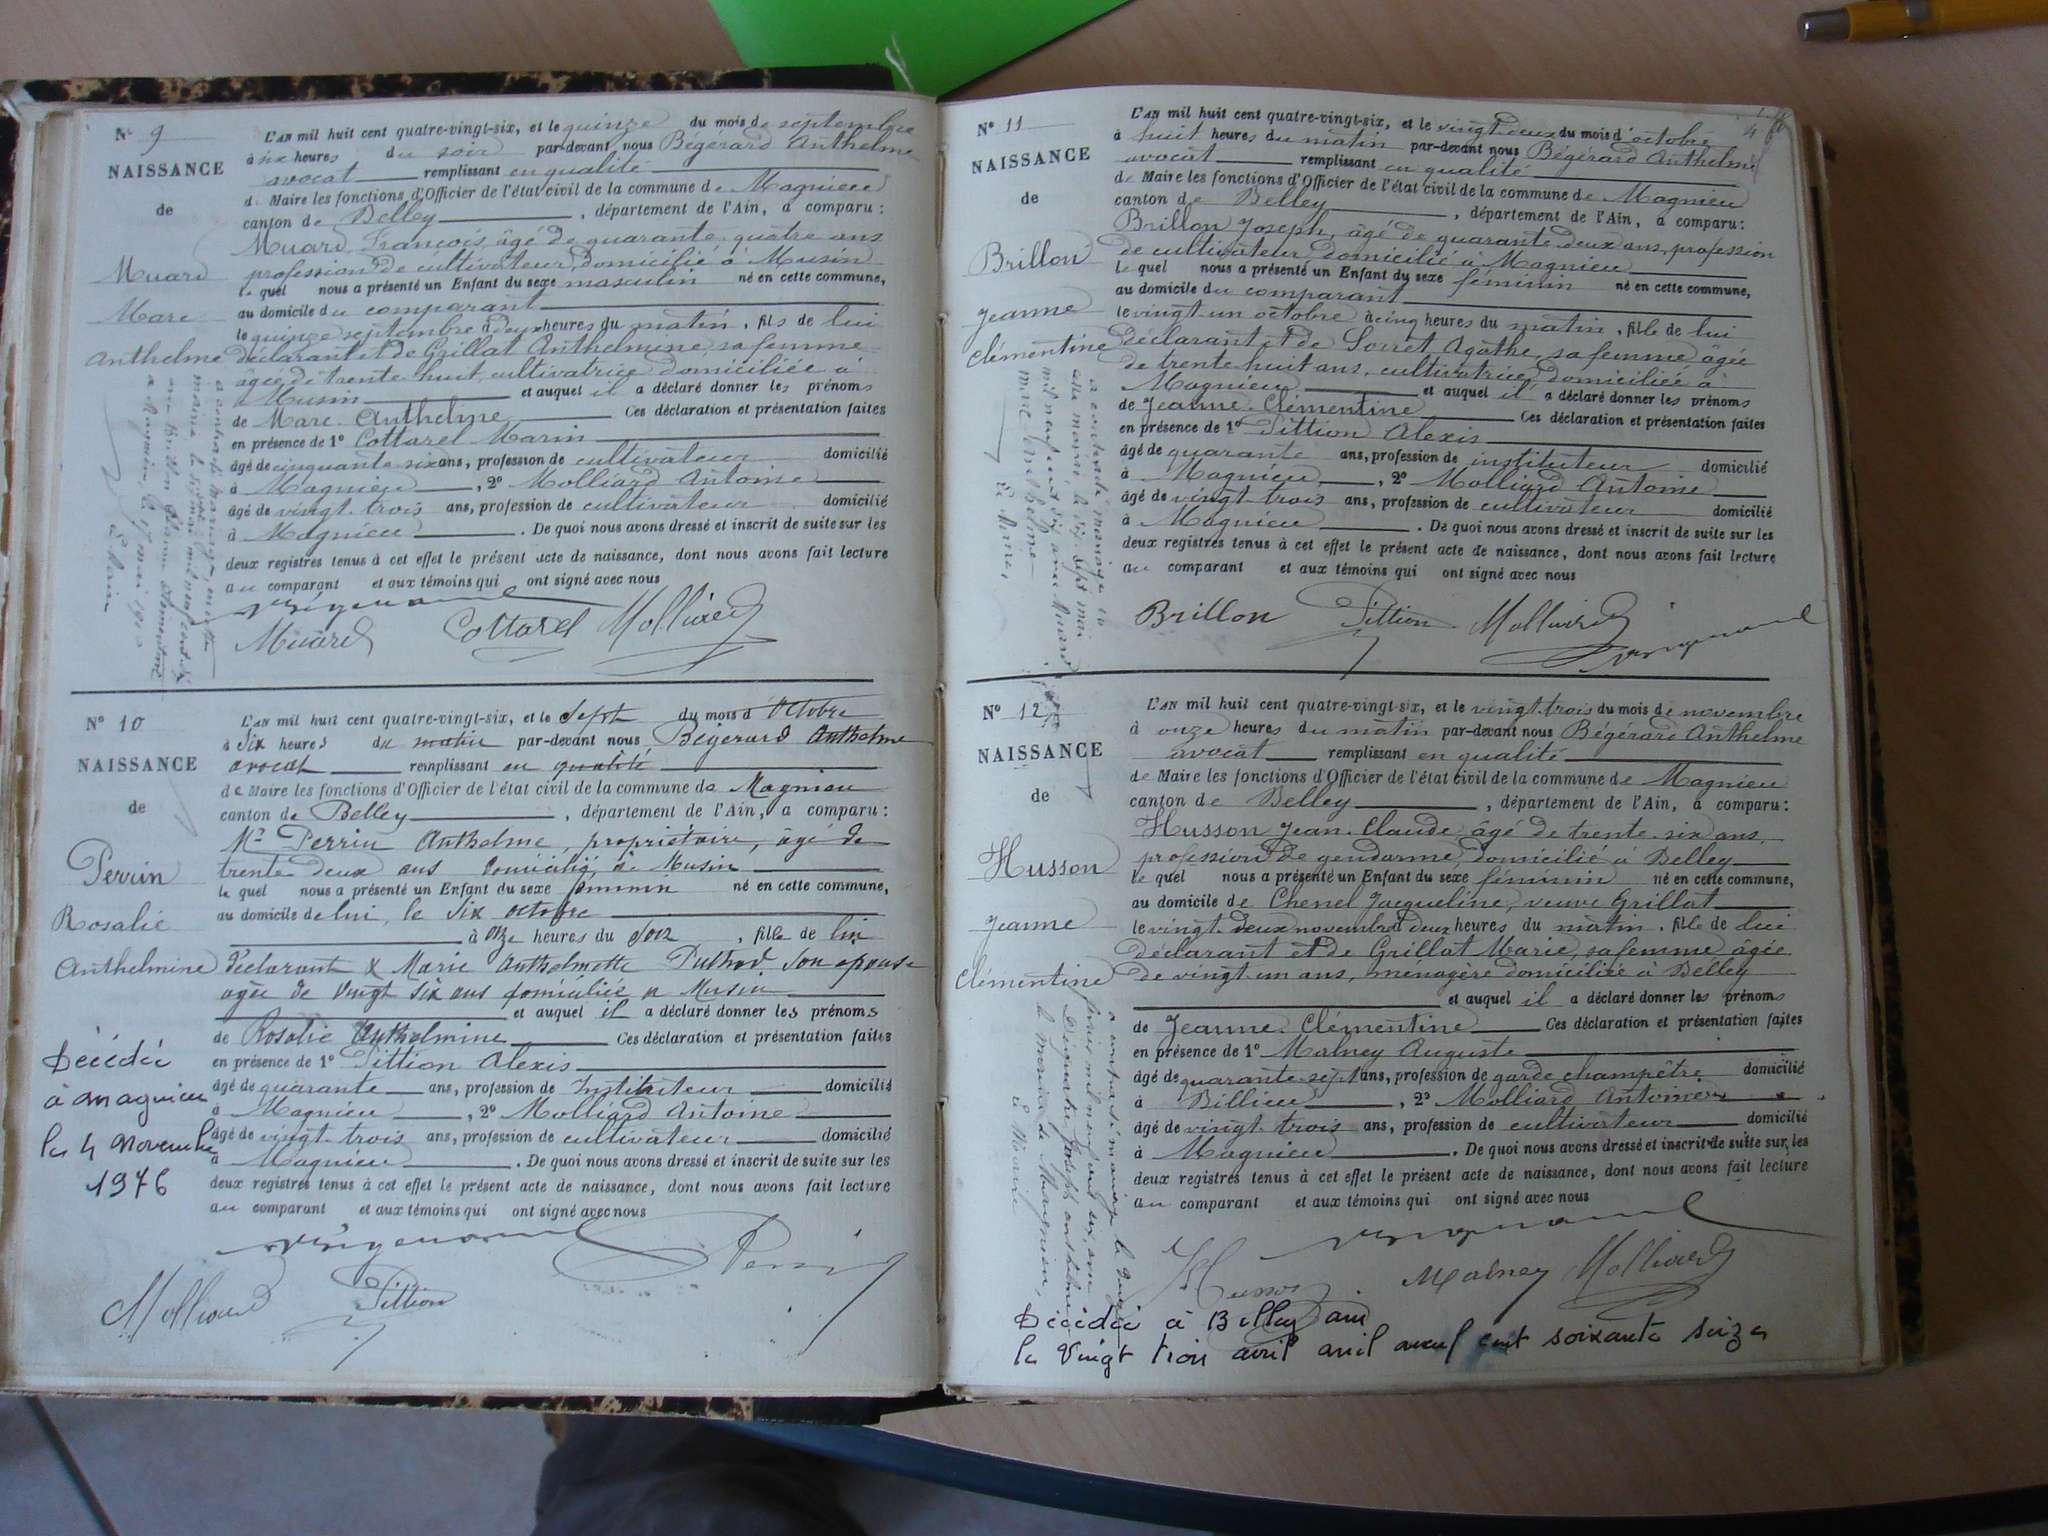 N° 9
NAISSANCE
de
Muard
Marc
Anthelme
L'AN mil huit cent quatre-vingt-six, et le quinze du mois de septembre
à six heures du soir par-devant nous Bégérard Anthelme
avocat remplissant en qualité
de Maire les fonctions d'Officier de l'état civil de la commune de Magnieu
canton de Belley, département de l'Ain, a comparu :
Muard François, âgé de quarante quatre ans
profession de cultivateur, domicilié à Musin
le quel nous a présenté un Enfant du sexe masculin né en cette commune,
au domicile du comparant
le quinze septembre à deux heures du matin, fils de lui
déclarant et de Grillat Anthelmine, sa femme
âgée de trente huit, cultivatrice, domiciliée à
Musin et auquel il a déclaré donner les prénoms
de Marc Anthelme Ces déclaration et présentation faites
en présence de 1° Cottarel Marin
âgé de cinquante six ans, profession de cultivateur domicilié
à Magnieu, 2° Molliard Antoine
âgé de vingt trois ans, profession de cultivateur domicilié
à Magnieu. De quoi nous avons dressé et inscrit de suite sur les
deux registres tenus à cet effet le présent acte de naissance, dont nous avons fait lecture
au comparant et aux témoins qui ont signé avec nous
Muard Cottarel Molliard
a contracté mariage, en cette
mairie le mai mil neuf cent dix
avec Brillon Jeanne Clémentine
à Magnieu le 17 mai
Le Maire
N° 10
NAISSANCE
de
Perrin
Rosalie
Anthelmine
L'AN mil huit cent quatre-vingt-six, et le sept du mois d'octobre
à six heures du matin par-devant nous Bégérard Anthelme
avocat remplissant en qualité
de Maire les fonctions d'Officier de l'état civil de la commune de Magnieu
canton de Belley, département de l'Ain, a comparu :
Mr Perrin Anthelme, propriétaire, âgé de
trente deux ans domicilié à Musin
le quel nous a présenté un Enfant du sexe féminin né en cette commune,
au domicile de lui, le six octobre
à onze heures du soir, fille de lui
déclarant & Marie Anthelmette son epouse
agée de vingt six ans domiciliée a Musin
et auquel il a déclaré donner les prénoms
de Rosalie Anthelmine Ces déclaration et présentation faites
en présence de 1° Tittion Alexis
âgé de quarante ans, profession de Instituteur domicilié
à Magnieu, 2° Molliard Antoine
âgé de vingt trois ans, profession de cultivateur domicilié
à Magnieu. De quoi nous avons dressé et inscrit de suite sur les
deux registres tenus à cet effet le présent acte de naissance, dont nous avons fait lecture
au comparant et aux témoins qui ont signé avec nous
Perrin
Molliard Tittion
Décédée
à Magnieu
le 4 Novembre
1976
N° 11
NAISSANCE
de
Brillon
Jeanne
Clémentine
L'AN mil huit cent quatre-vingt-six, et le vingt deux du mois d'octobre
à huit heures du matin par-devant nous Bégérard Anthelme
avocat remplissant en qualité
de Maire les fonctions d'Officier de l'état civil de la commune de Magnieu
canton de Belley, département de l'Ain, a comparu :
Brillon Joseph, âgé de quarante deux ans, profession
de cultivateur, domicilié à Magnieu
le quel nous a présenté un Enfant du sexe féminin né en cette commune,
au domicile du comparant
le vingt un octobre à cinq heures du matin, fille de lui
déclarant et de Sorret Agathe, sa femme âgée
de trente huit ans, cultivatrice, domiciliée à
Magnieu et auquel il a déclaré donner les prénoms
de Jeanne Clémentine Ces déclaration et présentation faites
en présence de 1° Tittion Alexis
âgé de quarante ans, profession de instituteur domicilié
à Magnieu, 2° Molliard Antoine
âgé de vingt trois ans, profession de cultivateur domicilié
à Magnieu. De quoi nous avons dressé et inscrit de suite sur les
deux registres tenus à cet effet le présent acte de naissance, dont nous avons fait lecture
au comparant et aux témoins qui ont signé avec nous
Brillon Tittion Molliard
a contracté mariage en
cette mairie le dix sept mai
mil neuf cent dix avec Muard
Marc Anthelme
Le Maire,
N° 12
NAISSANCE
de
Husson
Jeanne
Clémentine
L'AN mil huit cent quatre-vingt-six, et le vingt trois du mois de novembre
à onze heures du matin par-devant nous Bégérard Anthelme
avocat remplissant en qualité
de Maire les fonctions d'Officier de l'état civil de la commune de Magnieu
canton de Belley, département de l'Ain, a comparu :
Husson Jean Claude, âgé de trente six ans,
profession de gendarme, domicilié à Belley
le quel nous a présenté un Enfant du sexe féminin né en cette commune,
au domicile de Chenel Jacqueline, veuve Grillat
le vingt deux novembre à deux heures du matin, fille de lui
déclarant et de Grillat Marie, sa femme, âgée
de vingt un ans, ménagère domiciliée à Belley
et auquel il a déclaré donner les prénoms
de Jeanne Clémentine Ces déclaration et présentation faites
en présence de 1° Malney Auguste
âgé de quarante sept ans, profession de garde champêtre domicilié
à Billieu, 2° Molliard Antoine
âgé de vingt trois ans, profession de cultivateur domicilié
à Magnieu. De quoi nous avons dressé et inscrit de suite sur les
deux registres tenus à cet effet le présent acte de naissance, dont nous avons fait lecture
au comparant et aux témoins qui ont signé avec nous
Husson Malney Molliard
a contracté mariage le
mil neuf cent six avec
Joseph Anthelme
à la mairie de Magnieu,
Le Maire
Décédée à Belley ain
le vingt trois avril mil neuf cent soixante seize